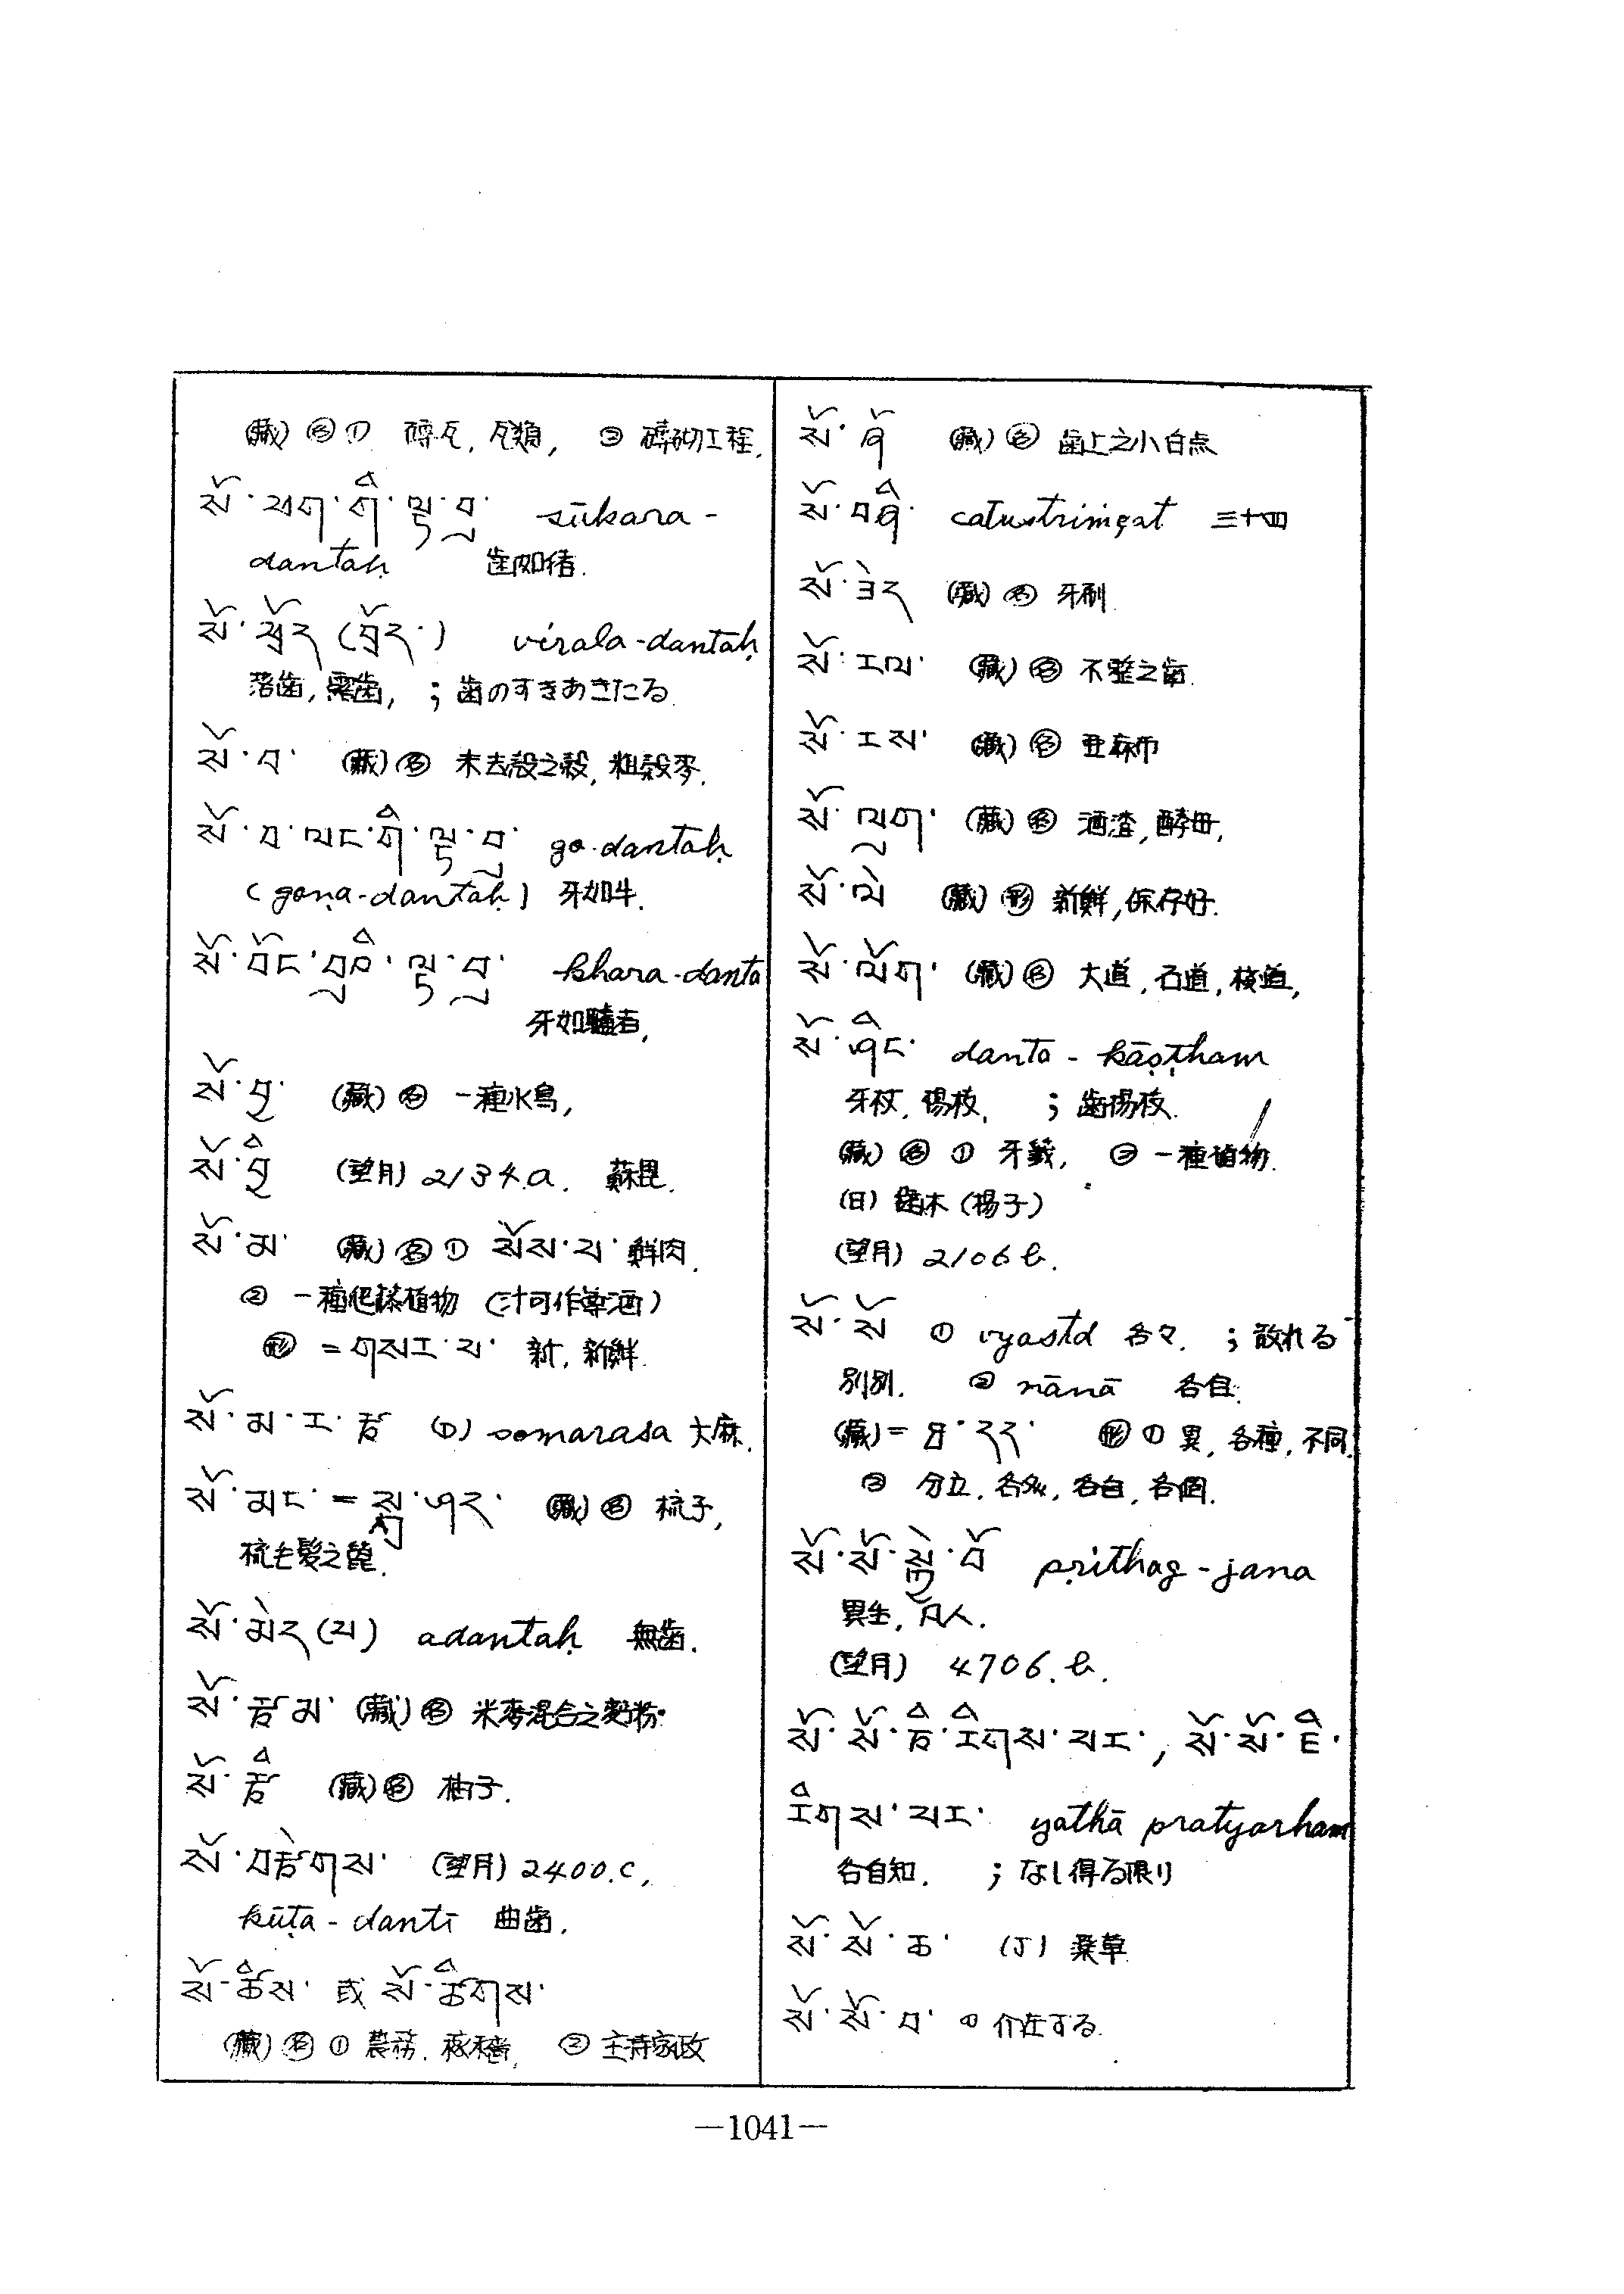 (藏) 名 ① 磚瓦, 瓦類, ② 磚砌工程.
སོ་ཕག་གི་ལྟ་བུ་ sūkara-
dantaḥ 歯如猪.
སོ་སྲོད (བྲོད་) virala-dantaḥ
落歯, 歯, ; 歯のすきあきたる.
སོ་བ་ (藏) 名 未去殼之穀, 粗穀麥.
སོ་བ་ལང་གི་ལྟ་བུ་ go-dantaḥ
(goṇa-dantaḥ) 牙如牛.
སོ་བོང་བུའི་ལྟ་བུ་ khara-danta
牙如驢者,
སོ་བྱ་ (藏) 名 一種水鳥,
སོ་བྱི (望月) 2134.a. 蘇毘.
སོ་མ་ (藏) 名 ① སོས་པ་ 鮮肉.
② 一種爬藤植物 (汁可作草酒)
形 = གསར་པ་ 新, 新鮮.
སོ་མ་ར་ཛ (D) somarasa 大麻.
སོ་མང་ = 藏) 名 梳子,
梳毛髮之篦.
སོ་མེད (པ) adantaḥ 無歯.
སོ་ཙམ་ (藏) 名 米麥混合之麨粉.
སོ་ཙི (藏) 名 柚子.
སོ་བརྩེགས་ (望月) 2400.c,
kūṭa-dantī 曲歯.
སོ་ཚིས་ 或 སོ་ཚིགས་
(藏) 名 ① 農務. 稼穡, ② 主持家政
སོ་ཞོ (藏) 名 歯上之小白点
སོ་བཞི་ catustriṃçat 三十四
སོ་ཟེད (藏) 名 牙刷.
སོ་རལ་ (藏) 名 不整之歯.
སོ་རས་ (藏) 名 亜麻布
སོ་ལུག་ (藏) 名 酒渣, 酵母,
སོ་ལེ (藏) 形 新鮮, 保存好.
སོ་ལོག་ (藏) 名 大道, 石道, 棧道,
སོ་ཤིང་ danta-kāṣṭham
牙杖, 楊枝, ; 歯楊枝.
(藏) 名 ① 牙籤, ② 一種植物.
(日) 歯木 (楊子)
(望月) 2106 b.
སོ་སོ ① vyasta 各々. ; 散れる
別別. ② nānā 各自.
(藏) = ཐ་དད་ 形 ① 異, 各種, 不同.
② 分立, 各处, 各自, 各個.
སོ་སོ་སྐྱེ་བོ pṛithag-jana
異生, 凡人.
(望月) 4706.b.
སོ་སོ་ཙི་རིགས་པར་, སོ་སོ་ཇི་
རིགས་པར་ yathā pratyarham
各自知. ; なし得る限り
སོ་སོ་ཆ་ (J) 草
སོ་སོ་བ་ ① 介在する.
—1041—